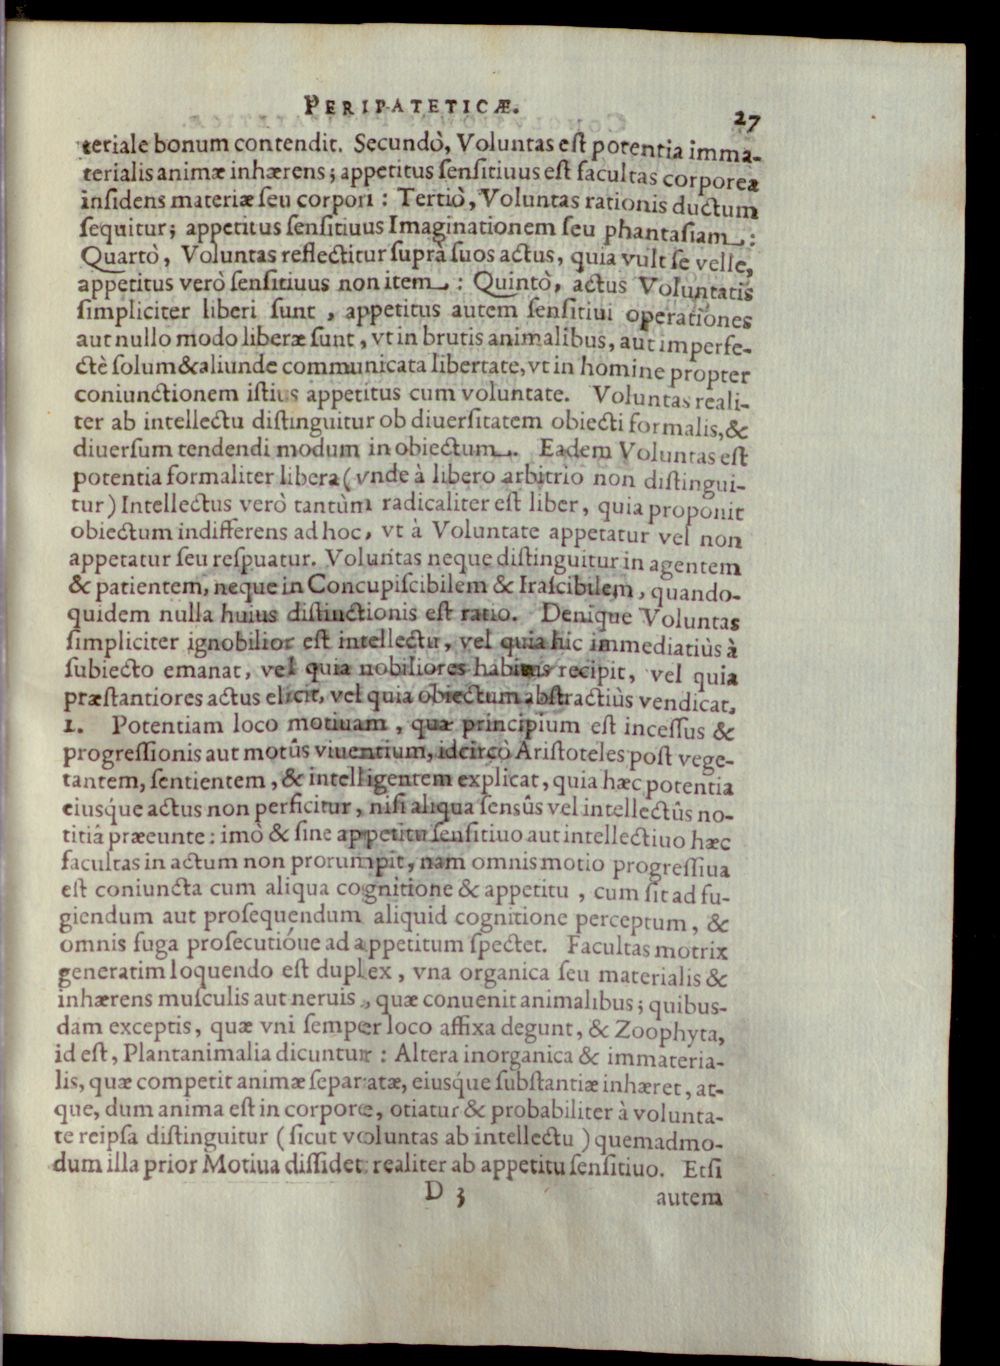 PERIPATETICÆ.
27
teriale bonum contendit. Secundò, Voluntas est potentia imma-
terialis animæ inhærens; appetitus sensitiuus est facultas corporea
insidens materiæ seu corpori : Tertiò, Voluntas rationis ductum
sequitur; appetitus sensitiuus Imaginationem seu phantasiam :
Quartò, Voluntas reflectitur suprà suos actus, quia vult se velle,
appetitus verò sensitiuus non item : Quintò, actus Voluntatis
simpliciter liberi sunt , appetitus autem sensitiui operationes
aut nullo modo liberæ sunt, vt in brutis animalibus, aut imperfe-
ctè solum & aliunde communicata libertate, vt in homine propter
coniunctionem istius appetitus cum voluntate. Voluntas reali-
ter ab intellectu distinguitur ob diuersitatem obiecti formalis, &
diuersum tendendi modum in obiectum. Eadem Voluntas est
potentia formaliter libera (vnde à libero arbitrio non distingui-
tur) Intellectus verò tantùm radicaliter est liber, quia proponit
obiectum indifferens ad hoc, vt à Voluntate appetatur vel non
appetatur seu respuatur. Voluntas neque distinguitur in agentem
& patientem, neque in Concupiscibilem & Irascibilem, quando-
quidem nulla huius distinctionis est ratio. Denique Voluntas
simpliciter ignobilior est intellectu, vel quia hic immediatiùs à
subiecto emanat, vel quia nobiliores habitus recipit, vel quia
præstantiores actus elicit, vel quia obiectum abstractiùs vendicat.
1. Potentiam loco motiuam , quæ principium est incessus &
progressionis aut motûs viuentium, idcircò Aristoteles post vege-
tantem, sentientem, & intelligentem explicat, quia hæc potentia
eiusq́ue actus non perficitur, nisi aliqua sensûs vel intellectûs no-
titiâ præeunte : imò & sine appetitu sensitiuo aut intellectiuo hæc
facultas in actum non prorumpit, nam omnis motio progressiua
est coniuncta cum aliqua cognitione & appetitu , cum sit ad fu-
giendum aut prosequendum aliquid cognitione perceptum, &
omnis fuga prosecutióue ad appetitum spectet. Facultas motrix
generatim loquendo est duplex, vna organica seu materialis &
inhærens musculis aut neruis , quæ conuenit animalibus; quibus-
dam exceptis, quæ vni semper loco affixa degunt, & Zoophyta,
id est, Plantanimalia dicuntur : Altera inorganica & immateria-
lis, quæ competit animæ separatæ, eiusq́ue substantiæ inhæret, at-
que, dum anima est in corpore, otiatur & probabiliter à volunta-
te reipsa distinguitur (sicut voluntas ab intellectu) quemadmo-
dum illa prior Motiua dissidet realiter ab appetitu sensitiuo. Etsi
D 3
autem